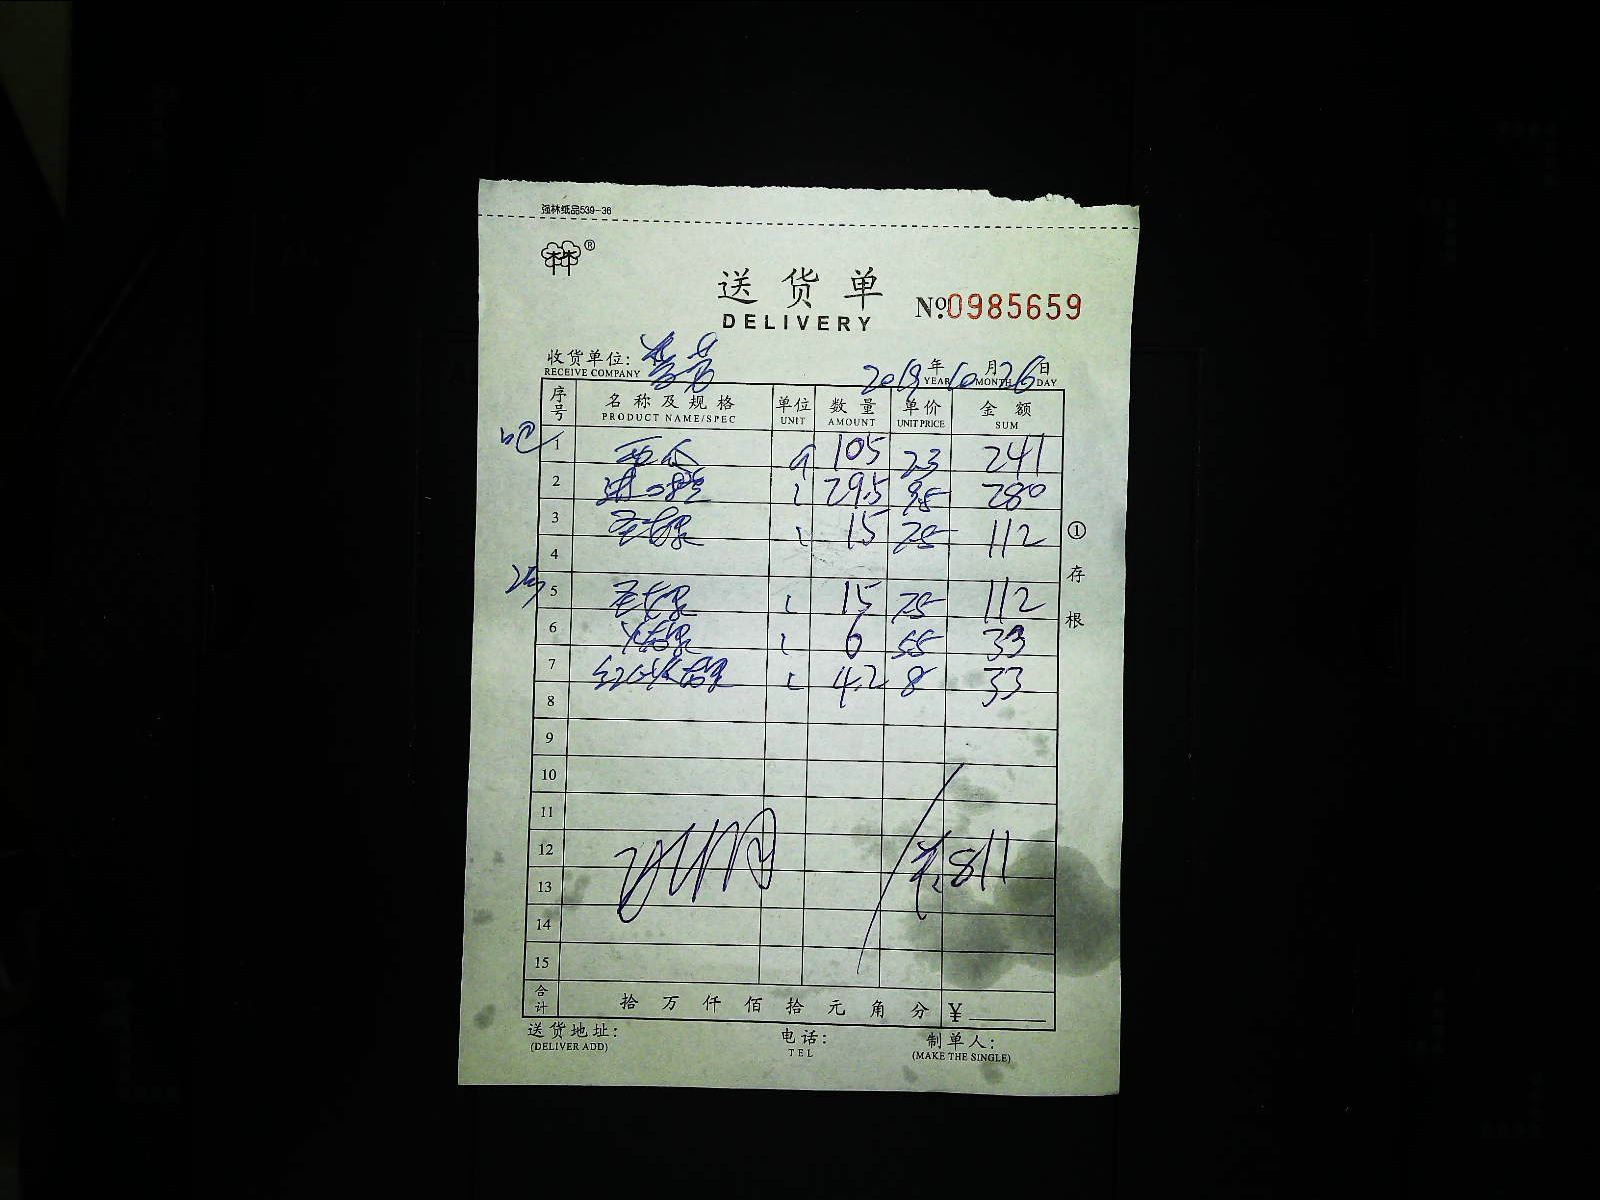 强林纸品539-36
林林®
送货单 №0985659
DELIVERY
收货单位: 2019年10月26日
RECEIVE COMPANY YEAR MONTH DAY
序号 名称及规格 单位 数量 单价 金额
PRODUCT NAME/SPEC UNIT AMOUNT UNIT PRICE SUM
吧 1 西瓜 105 23 241
2 进口橙 29.5 9.5 280
3 15 7.5 112
4
5 15 7.5 112
6 火龙果 6 5.5 33
7 红心火龙果 4.2 8 33
8
9
10
11
12 811
13
14
15
合计 拾 万 仟 佰 拾 元 角 分 ¥
送货地址: 电话: 制单人:
(DELIVER ADD) TEL (MAKE THE SINGLE)
①存根